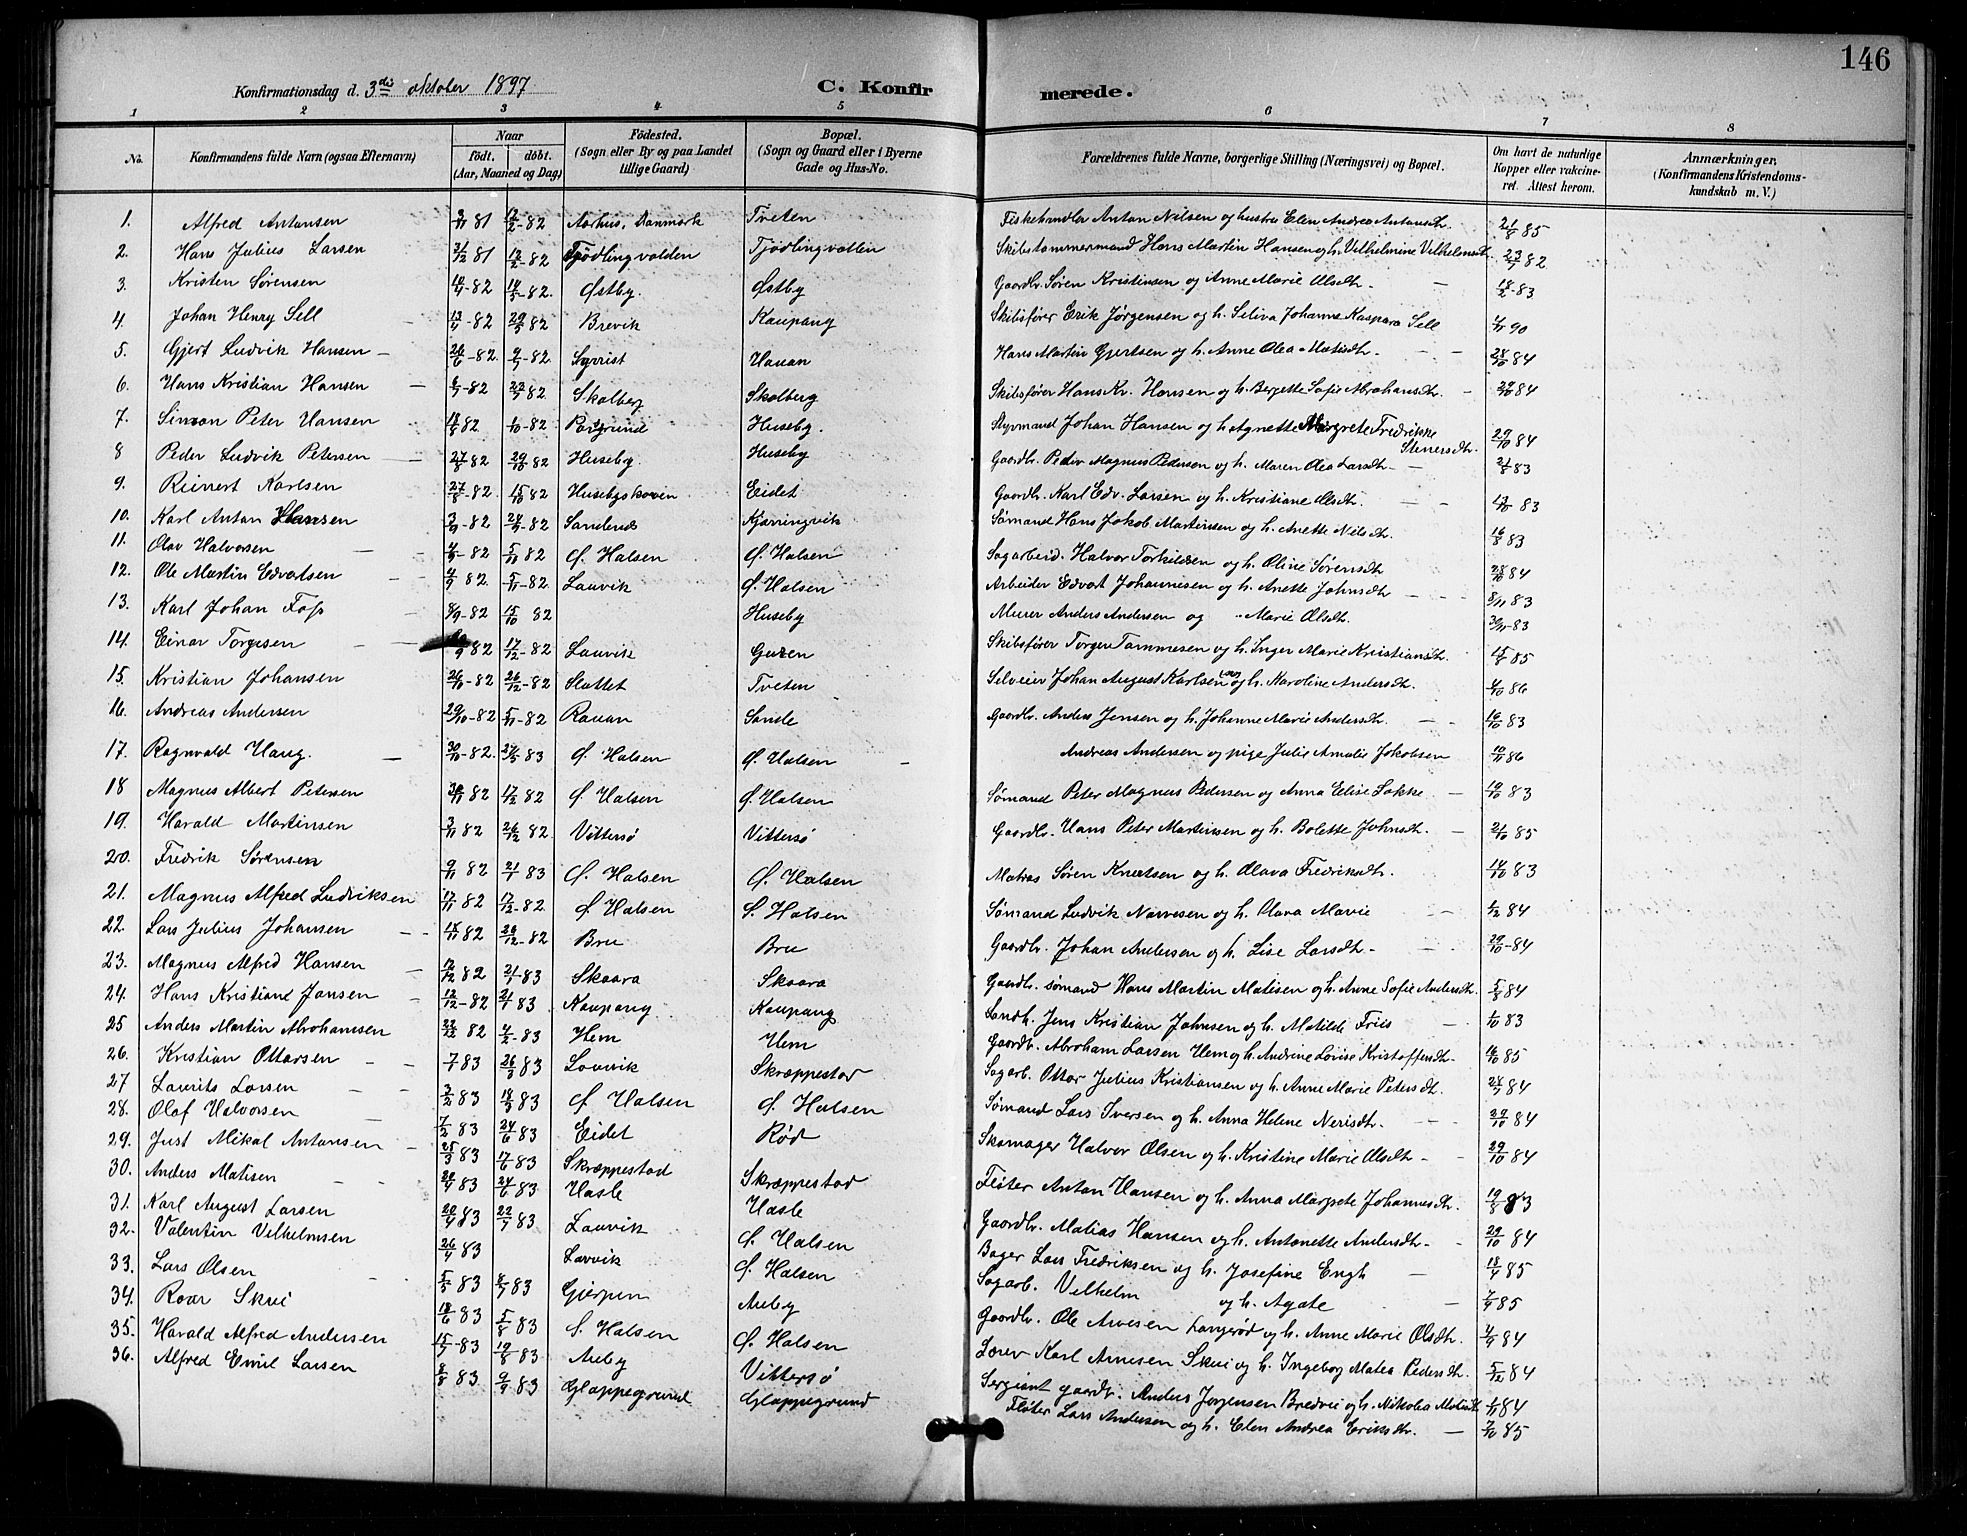 146
Konfirmationsdag d. 3die oktober 1897 C. Konfirmerede.
1 2 3 4 5 6 7 8
No. Konfirmandens fulde Navn (ogsaa Efternavn) Naar født, døbt. (Aar, Maaned og Dag) Födested. (Sogn eller By og paa Landet tillige Gaard) Bopæl. (Sogn og Gaard eller i Byerne Gade og Hus-No. Forældrenes fulde Navne, borgerlige Stilling (Næringsvei) og Bopæl. Om havt de naturlige Kopper eller vakcineret. Attest herom. Anmærkninger. (Konfirmandens Kristendomskundskab m. V.)
1. Alfred Antonsen 3/11 81 12/2-82 Aarhus, Danmark Tveten Fiskehandler Anton Nilsen og hustru Elen Andrea Antonsdtr. 21/8 85
2. Hans Julius Larsen 31/12 81 12/2-82 Tjødlingvolden Tjødlingvollen Skibstømmermand Hans Martin Hansen og h. Vilhelmine Vilhelmsdtr. 23/7 82
3. Kristen Sørensen 82 82. Østby Østby Gaardbr. Søren Kristensen og Anne Marie Olsdtr. 18/2-83
4. Johan Henry Sell 13/4-82 29/5 82 Brevik Kaupang Skibsfører Erik Jørgensen og h. Seliva Johanne Kaspara Sell 90
5. Gjert Ludvik Hansen 26/6-82. 9/7-82 Syrrist Hauan Hans Martin Gjertsen og h. Anne Olea Matisdtr. 28/10 84
6. Hans Kristian Hansen 82 82 Skalberg Skalberg Skibsfører Hans Kr. Hansen og h. Bergette Sofie Abrahamsdtr. 29/10 84
7. Simon Peter Hansen 18/8 82 1/10-82 Porsgrund Huseby. Styrmand Johan Hansen og h. Agnette Margrete Fredrikke Stenersdtr. 29/10 84
8 Peder Ludvik Petersen 27/8 82 29/10 82 Huseby Huseby Gaardbr. Peder Magnus Pedersen og h. Maren Olea Larsdtr. 21/8 83
9. Reinert Karlsen 27/8-82. 15/10 82 Husebyskoven Eidet Gaardbr. Karl Edv. Larsen og h. Kristiane Olsdtr. 83
10. Karl Anton Hansen 3/9-82 24/9-82 Sandenes Kjærringvik Sømand Hans Jakob Martinsen og h. Anette Nilsdtr. 16/8 83
11. Olav Halvorsen 4/9-82 5/11 82 Ø. Halsen Ø. Halsen Sagarbeid. Halvor Torkildsen og h. Oline Sørensdtr 28/10 84
12. Ole Martin Edvartsen 4/9 82. 5/11-82 Laurvik Ø. Halsen Arbeider Edvart Johannesen og h. Anette Johnsdtr 8/11 83
13. Karl Johan Foss 8/9-82 15/10 82 Huseby Murer Anders Andersen og Marie Olsdtr. 30/11-83
14. Einar Torgersen 9 82 17/12-82 Laurvik Gusen Skibsfører Torger Tommesen og h. Inger Marie Kristiansdtr. 15/8 85
15. Kristian Johansen 26/10-82 26/12-82 Slottet Tveten Selveier Johan August Karlsen og h. Karoline Andersdtr. 4/10 86
16. Andreas Andersen 29/10-82 5/11-82 Rauan Sande Gaardbr. Anders Jensen og h. Johanne Marie Andersdtr. 16/10 83
17. Ragnvald Haug. 30/10-82. 27/5 83 Ø. Halsen Ø. Halsen Andreas Andersen og pige Julie Amalie Jakobsen 10/11 86
18 Magnus Albert Petersen 82 17/12 82 Ø. Halsen Ø. Halsen Sømand Peter Magnus Pedersen og Anna Elise Lokke 19/10 83
19. Harald Martinsen 3/11 82 26/12 82. Vittersø Vittersø Gaardbr. Hans Peter Martinsen og h. Bolette Johnsdtr. 21/10 85
20. Fredrik Sørensen 9/11 82 21/1 83 Ø. Halsen Ø. Halsen Matros Søren Knutsen og h. Olava Fredriksdtr. 14/10 83
21. Magnus Alfred Ludviksen 17/11 82 17/12-82. Ø. Halsen Ø. Halsen Sømand Ludvik Narvesen og h. Olava Marie 1/12 84
22. Lars Julius Johansen 18/11 82 26/12-82 Bru Bru Gaardbr. Johan Andersen og h. Lise Larsdtr. 29/10-84
23. Magnus Alfred Hansen 12/12 82 21/1-83 Skaara Skaara Gaardbr. sømand Hans Martin Matisen og h. Anne Sofie Andersdtr. 5/8 84
24. Hans Kristiane Jansen 12/12-82 21/1 83 Kaupang Kaupang Landh. Jens Kristian Johnsen og h. Matilde Friis 1/10 83
25 Anders Martin Abrahamsen 22/12 82 4/2-83 Hem Hem Gaardbr. Abraham Larsen Hem og h. Andrine Lovise Kristoffersdtr. 85
26. Kristian Ottarsen 83 26/3 83 Laurvik Skræppestad Sagarb. Ottar Julius Kristiansen og h. Anne Marie Petersdtr. 84
27 Laurits Larsen 3/2 83 18/3 83 Ø Halsen Ø. Halsen Sømand Lars Iversen og h. Anna Helene Nerisdtr. 29/10 84
28. Olaf Halvorsen 7/2 83 24/6 83 Eidet Rød Skomager Halvor Olsen og h. Kristine Marie Olsdtr 29/10 84
29. Just Mikal Antonsen 25/3 83 17/6 83 Skræppestad Skræppestad Fløter Anton Hansen og h. Anna Margrete Johannesdtr. 19/8 83
30. Anders Matisen 20/4 83 24/6 83 Hasle Hasle Gaardbr. Matias Hansen og h. Antonette Andersdtr. 29/10 84
31. Karl August Larsen 20/4 83 22/7 83 Laurvik Ø. Halsen Bager Lars Fredriksen og h. Josefine Engh 18/4 85
32. Valentin Vilhelmsen 26/4 83 Larvik Ø. Halsen Sagarb. Vilhelm og h. Agate 7/9 85
33. Lars Olsen 5/5 83 8/7 83 Gjerpen Auby Gaardbr. Ole Arvesen Langerød og h. Anne Marie Olsdtr. 84
34. Roar Skui 18/6 83 5/8 83 Ø. Halsen Ø. Halsen Lærer Karl Arnesen Skui og h. Ingeborg Matea Pedersdtr. 5/12 84
35. Harald Alfred Andersen 15/7-83 19/8 83 Auby Vittersø Sergiant gaardbr. Anders Jørgensen Bredvei og h. Nikolea Matisdtr. 1/11 84
36. Alfred Emil Larsen 8/8 83 9/9 83 Gloppegrund Gloppegrund Fløter Lars Andersen og h. Elen Andrea Eriksdtr. 7/10 85